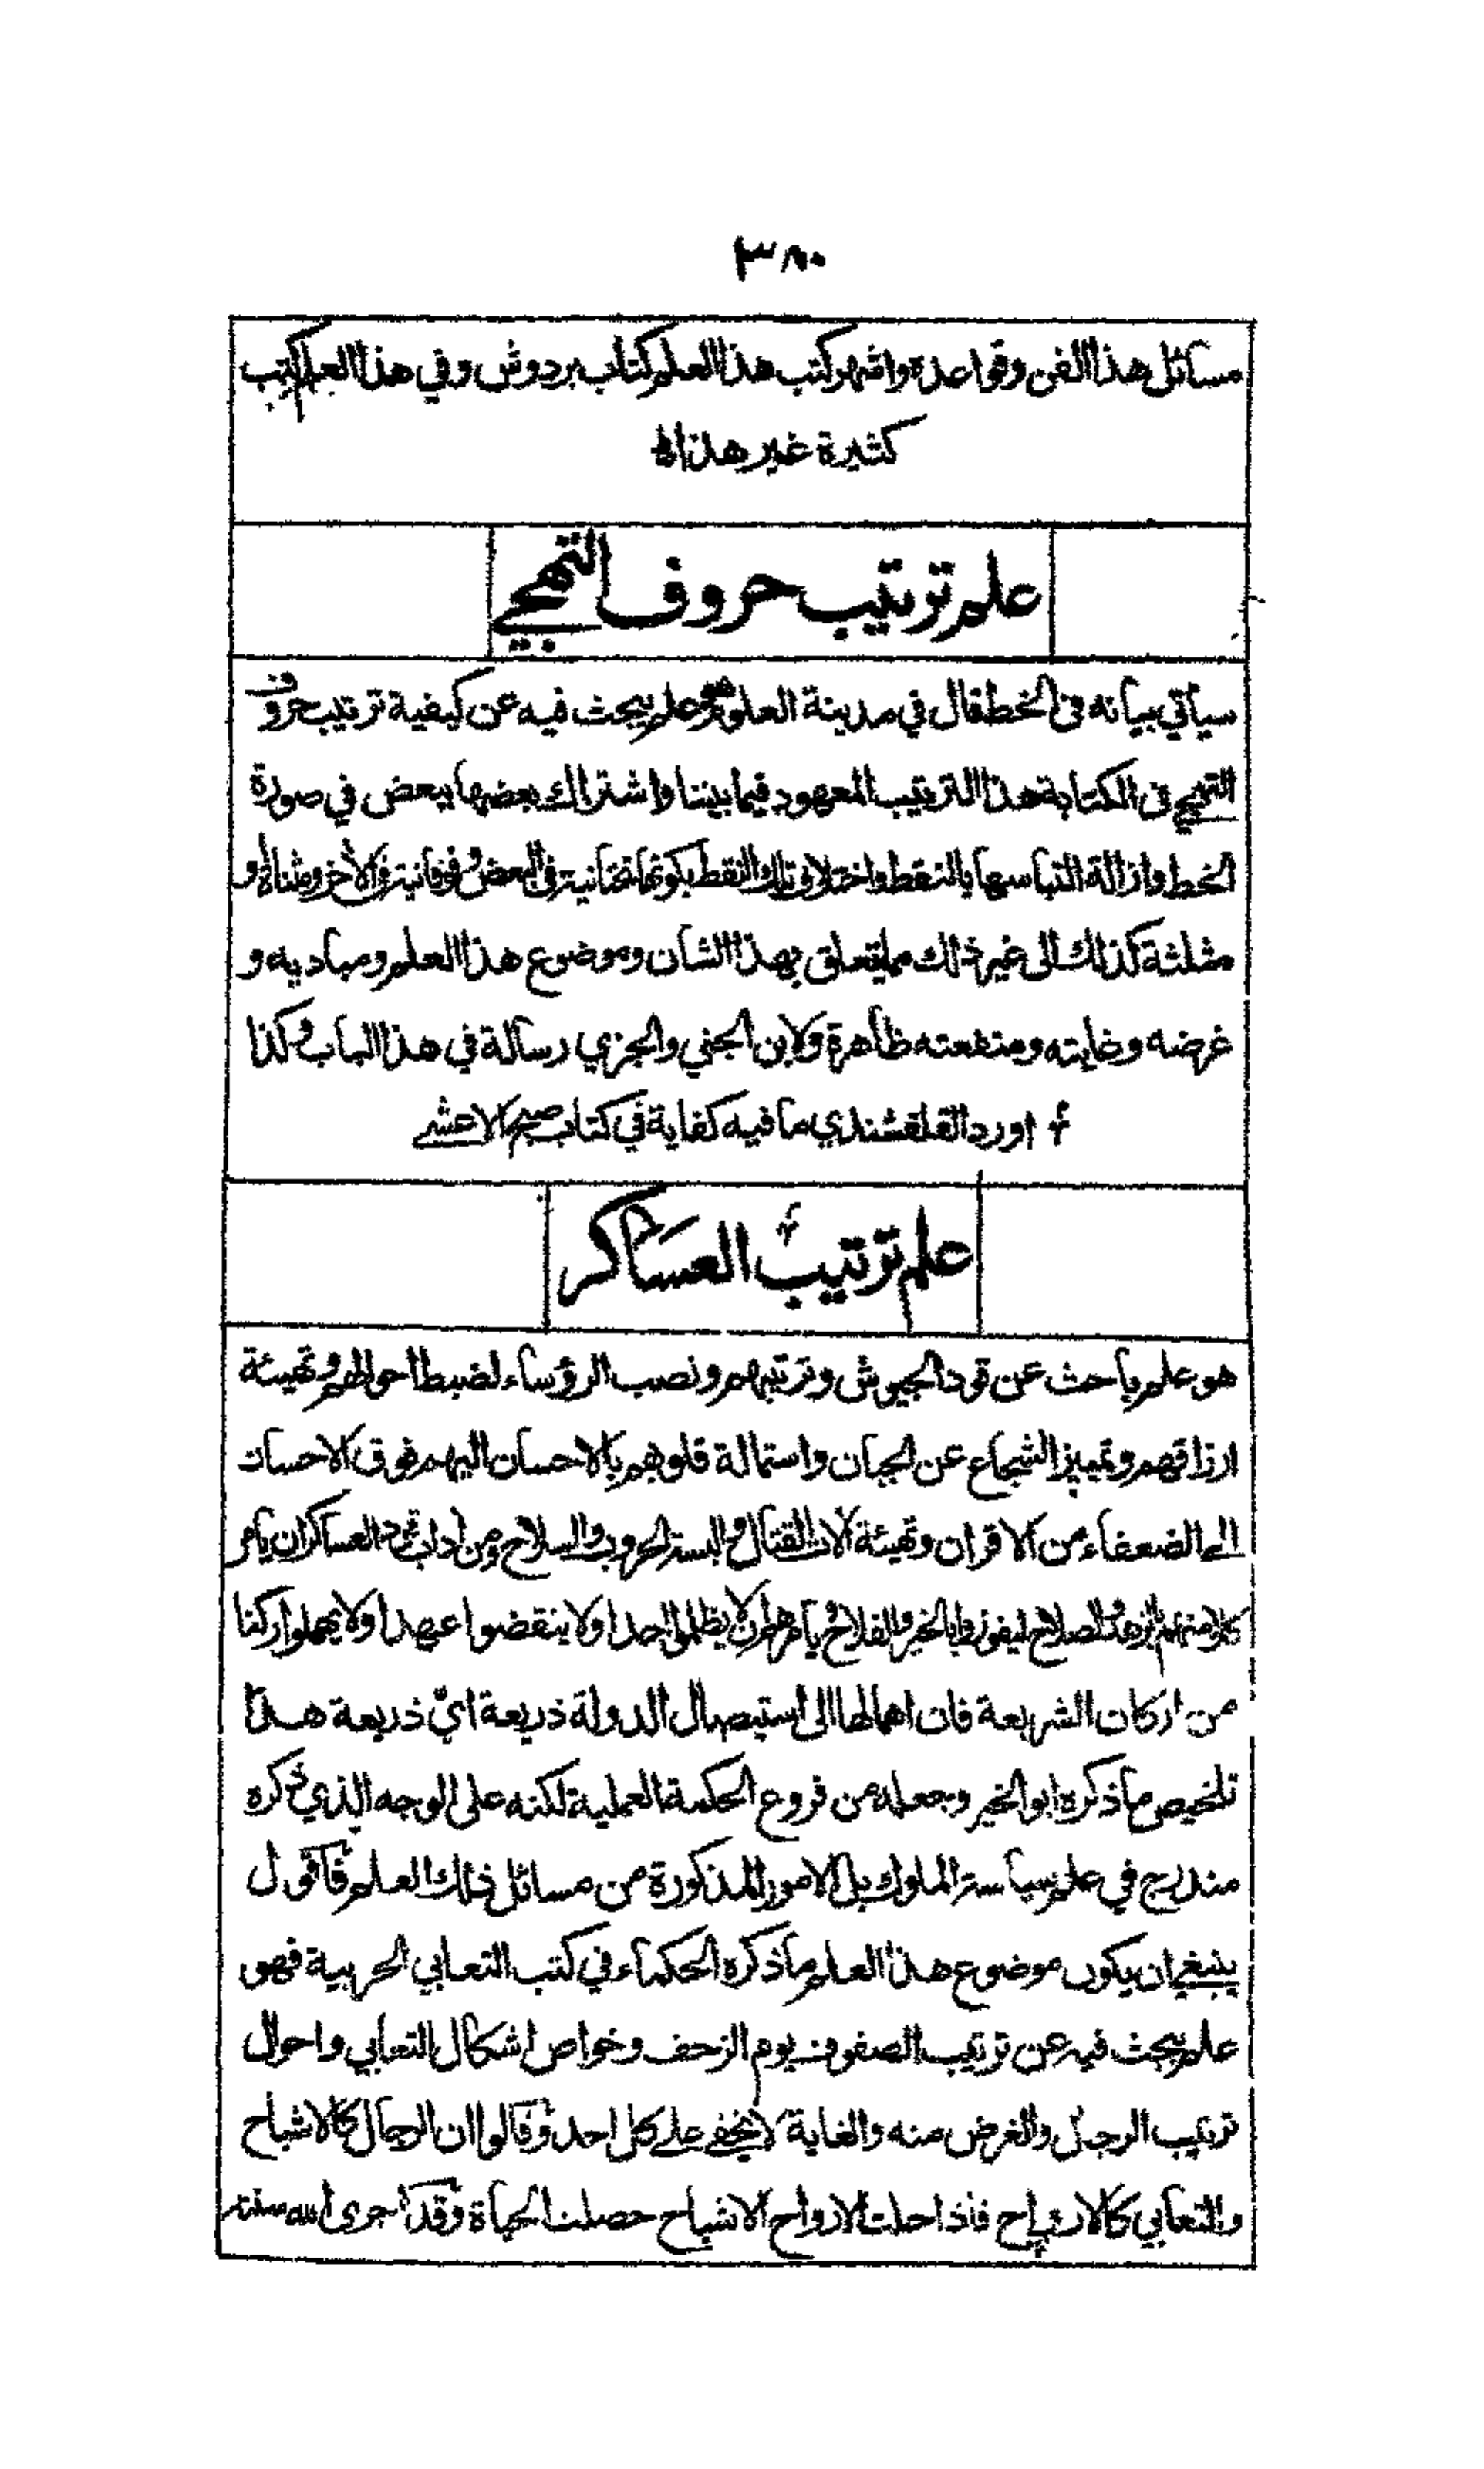 ٣٨٠
مسائل هذا الفن وقواعده واشهر كتب هذا العلم كتاب بردوش وفي هذا العلم كتب
كثيرة غير هذا
علم ترتيب حروف التهجي
سيأتي بيانه في الخط قال في مدينة العلوم هو علم يبحث فيه عن كيفية ترتيب حروف
التهجي في الكتابة هذا الترتيب المعهود فيما بيننا واشتراك بعضها ببعض في صورة
الخط وازالة التباسها بالنقط واختلاف تلك النقط بكونها تحتانية في البعض وفوقانية في الآخر ومثناة و
مثلثة كذلك الى غير ذلك مما يتعلق بهذا الشأن وموضوع هذا العلم ومباديه و
غرضه وغايته ومنفعته ظاهرة ولابن الجني والجزي رسالة في هذا الباب وكذا
اورد القلقشندي ما فيه كفاية في كتاب صبح الاعشى
علم ترتيب العساكر
هو علم باحث عن قود الجيوش وترتيبهم ونصب الرؤساء لضبط احوالهم وتهيئة
ارزاقهم وتمييز الشجاع عن الجبان واستمالة قلوبهم بالاحسان اليهم فوق الاحسان
الى الضعفاء من الاقران وتهيئة آلات القتال والبسة الحروب والسلاح ومن آداب قود العساكر ان يأمر
كلا منهم الزهد والصلاح ليفوزوا بالخير والفلاح ويأمرهم ان لا يظلموا احدا ولا ينقضوا عهدا ولا يهملوا ركنا
من اركان الشريعة فان اهمالها الى استيصال الدولة ذريعة اي ذريعة هذا
تلخيص ما ذكره ابو الخير وجعله من فروع الحكمة العملية لكنه على الوجه الذي ذكره
مندرج في علم سياسة الملوك بل الامور المذكورة من مسائل ذلك العلم فأقول
ينبغي ان يكون موضوع هذا العلم ما ذكره الحكماء في كتب التعابي الحربية فهو
علم يبحث فيه عن ترتيب الصفوف يوم الزحف وخواص اشكال التعابي واحوال
ترتيب الرجال والغرض منه والغاية لا يخفى على كل احد وقالوا ان الرجال كالاشباح
والتعابي كالارواح فاذا حلت الارواح الاشباح حصلت الحياة وقد اجرى الله سنته